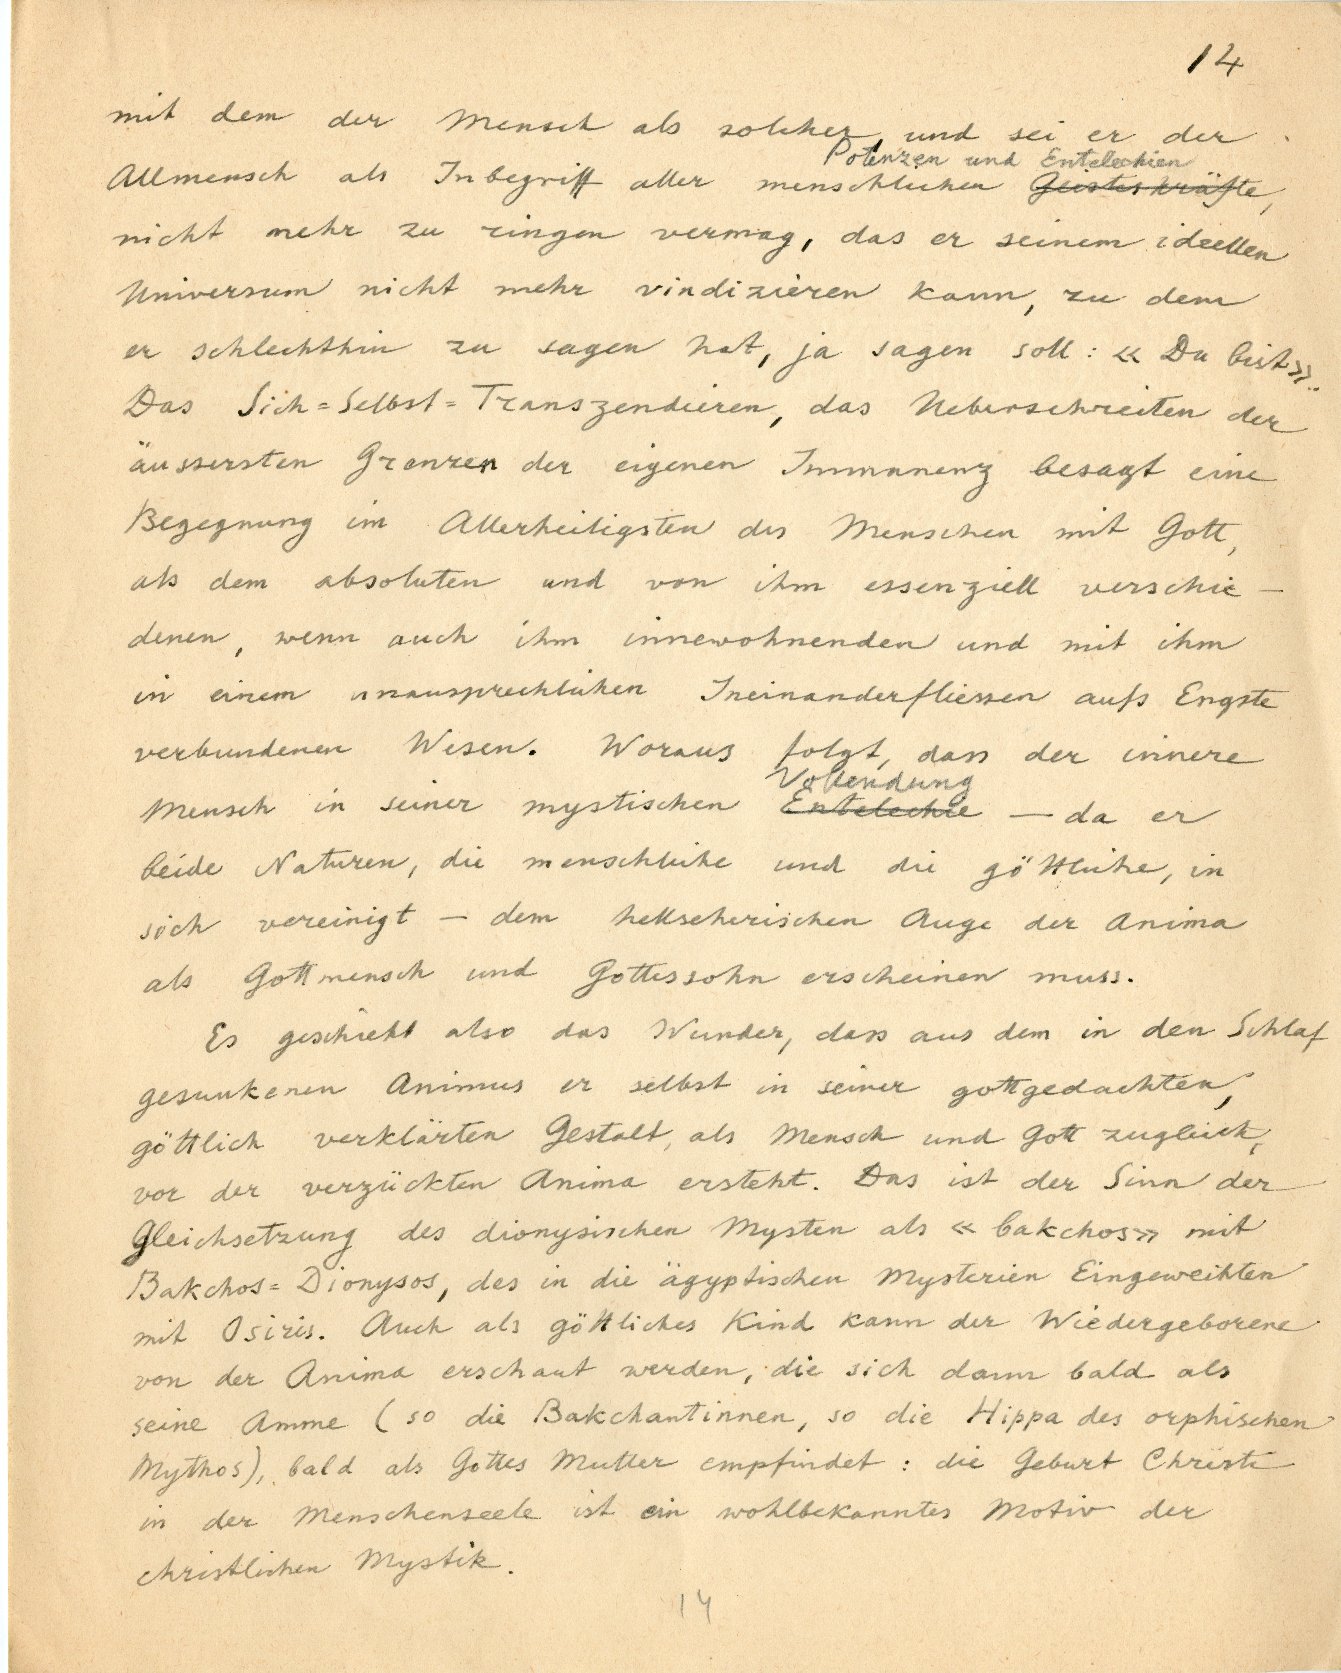 14
mit dem der Mensch als solcher, und sei er der
Potenzen und Entelechien
Allmensch als Inbegriff aller menschlichen Geisteskräfte,
nicht mehr zu ringen vermag, das er seinem ideellen
Universum nicht mehr vindizieren kann, zu dem
er schlechthin zu sagen hat, ja sagen soll: « Du bist».
Das Sich=Selbst=Transzendieren, das Ueberschreiten der
äussersten Grenzen der eigenen Immanenz besagt eine
Begegnung im Allerheiligsten des Menschen mit Gott,
als dem absoluten und von ihm essenziell verschie-
denen, wenn auch ihm innewohnenden und mit ihm
in einem unaussprechlichen Ineinanderfliessen aufs Engste
verbundenen Wesen. Woraus folgt, dass der innere
Vollendung
Mensch in seiner mystischen Entelechie — da er
beide Naturen, die menschliche und die göttliche, in
sich vereinigt — dem hellseherischen Auge der Anima
als Gottmensch und Gottessohn erscheinen muss.
Es geschieht also das Wunder, dass aus dem in den Schlaf
gesunkenen Animus er selbst in seiner gottgedachten,
göttlich verklärten Gestalt, als Mensch und Gott zugleich,
vor der verzückten Anima ersteht. Das ist der Sinn der
Gleichsetzung des dionysischen Mysten als « bakchos» mit
Bakchos=Dionysos, des in die ägyptischen Mysterien Eingeweihten
mit Osiris. Auch als göttliches Kind kann der Wiedergeborene
von der Anima erschaut werden, die sich dann bald als
seine Amme (so die Bakchantinnen, so die Hippa des orphischen
Mythos), bald als Gottes Mutter empfindet: die Geburt Christi
in der Menschenseele ist ein wohlbekanntes Motiv der
christlichen Mystik.
14